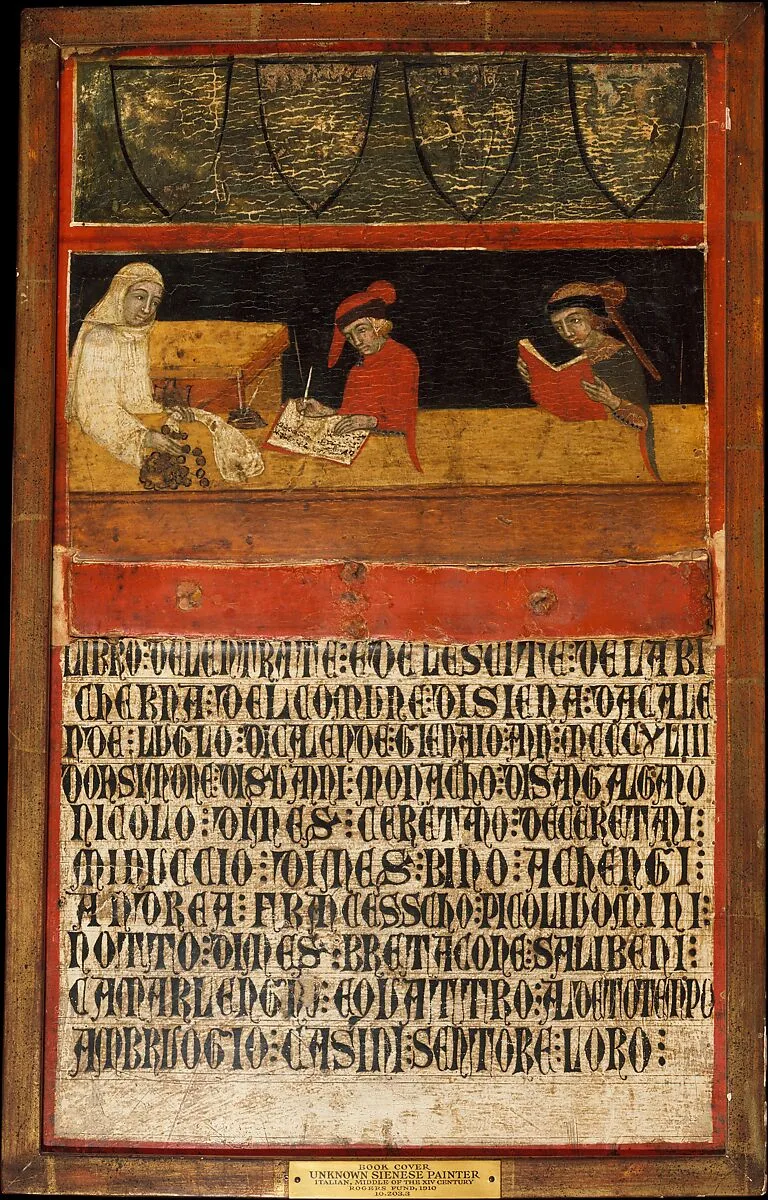 LIBRO : DELENTRATE : E DE LESCITE : DE LA BI
CHERNA : DEL COMUNE : DI SIENA : DA CALE
NDE : LUGLO : DI CALENDE : GIENAIO : ANN : MCCCXLIII
DON SIMONE : DI S : VANNI : MONACHO : DI SAN GALGANO
NICOLO : DIMES : CERETANO : DE CERETANI :
MINUCCIO : DIMES : BINO : ACHENGI :
ANDREA : FRANCESSCHO : PICOLUOMINI :
NOTTO : DIMES : BRETACONE : SALIBENI :
CAMARLENGHI : E QUATTRO : AL DETO TENPO
AMBRUOGIO : CASINI : SENTORE : LORO :
BOOK COVER
UNKNOWN SIENESE PAINTER
ITALIAN, MIDDLE OF THE XIV CENTURY
ROGERS FUND, 1910
10.203.3